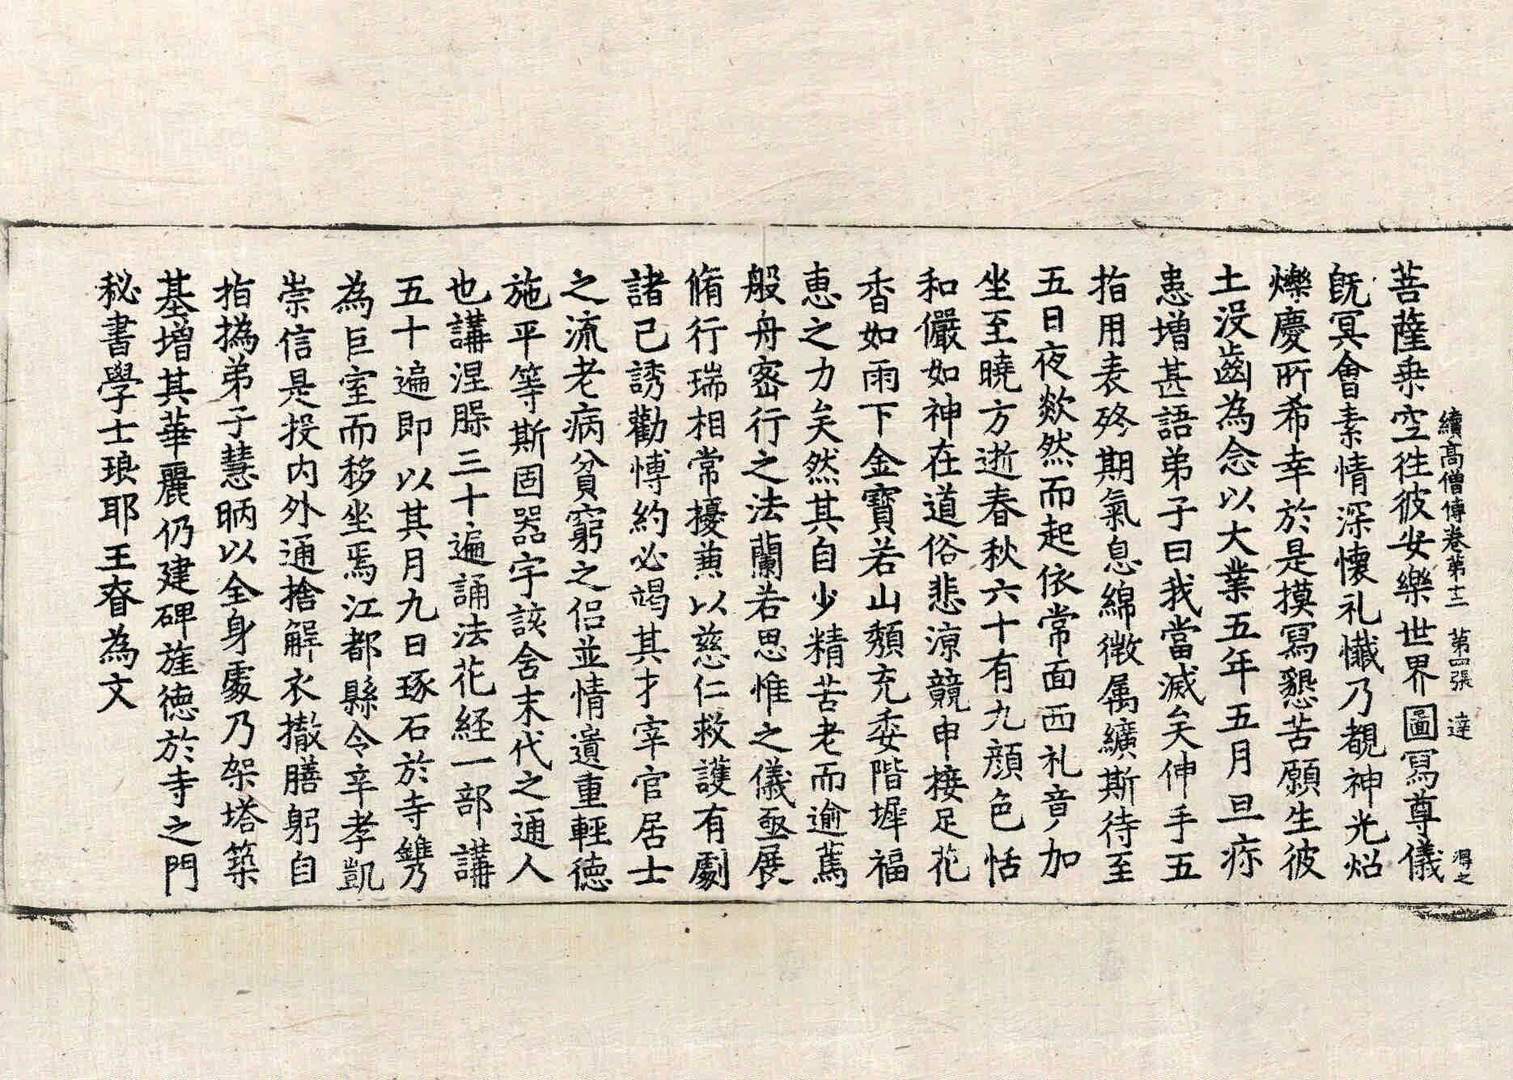 續高僧傳卷第十二 第四張 達
菩薩乗空往彼安樂世界圖寫尊儀
旣冥會素情深懷礼懺乃覩神光炤
爍慶所希幸於是摸冩懇苦願生彼
土没齒為念以大業五年五月旦疹
患增甚語弟子曰我當滅矣伸手五
指用表終期氣息綿微属纊斯待至
五日夜欻然而起依常面西礼竟加
坐至曉方逝春秋六十有九顔色恬
和儼如神在道俗悲凉競申接足花
香如雨下金寶若山頽充委階墀福
恵之力矣然其自少精苦老而逾篤
般舟宻行之法蘭若思惟之儀亟展
脩行瑞相常擾兼以慈仁救護有劇
諸己誘勸博約必竭其才宰官居士
之流老病貧窮之侣並情遺重輕德
施平等斯固器宇該含末代之通人
也講涅槃三十遍誦法花経一部講
五十遍即以其月九日琢石於寺鐫
為巨室而移坐焉江都縣令辛孝凱
崇信是投内外通捨解衣撤膳躬自
指撝弟子慧昞以全身處乃架塔築
基增其華麗仍建碑旌徳於寺之門
秘書學士琅耶王眘為文
得之